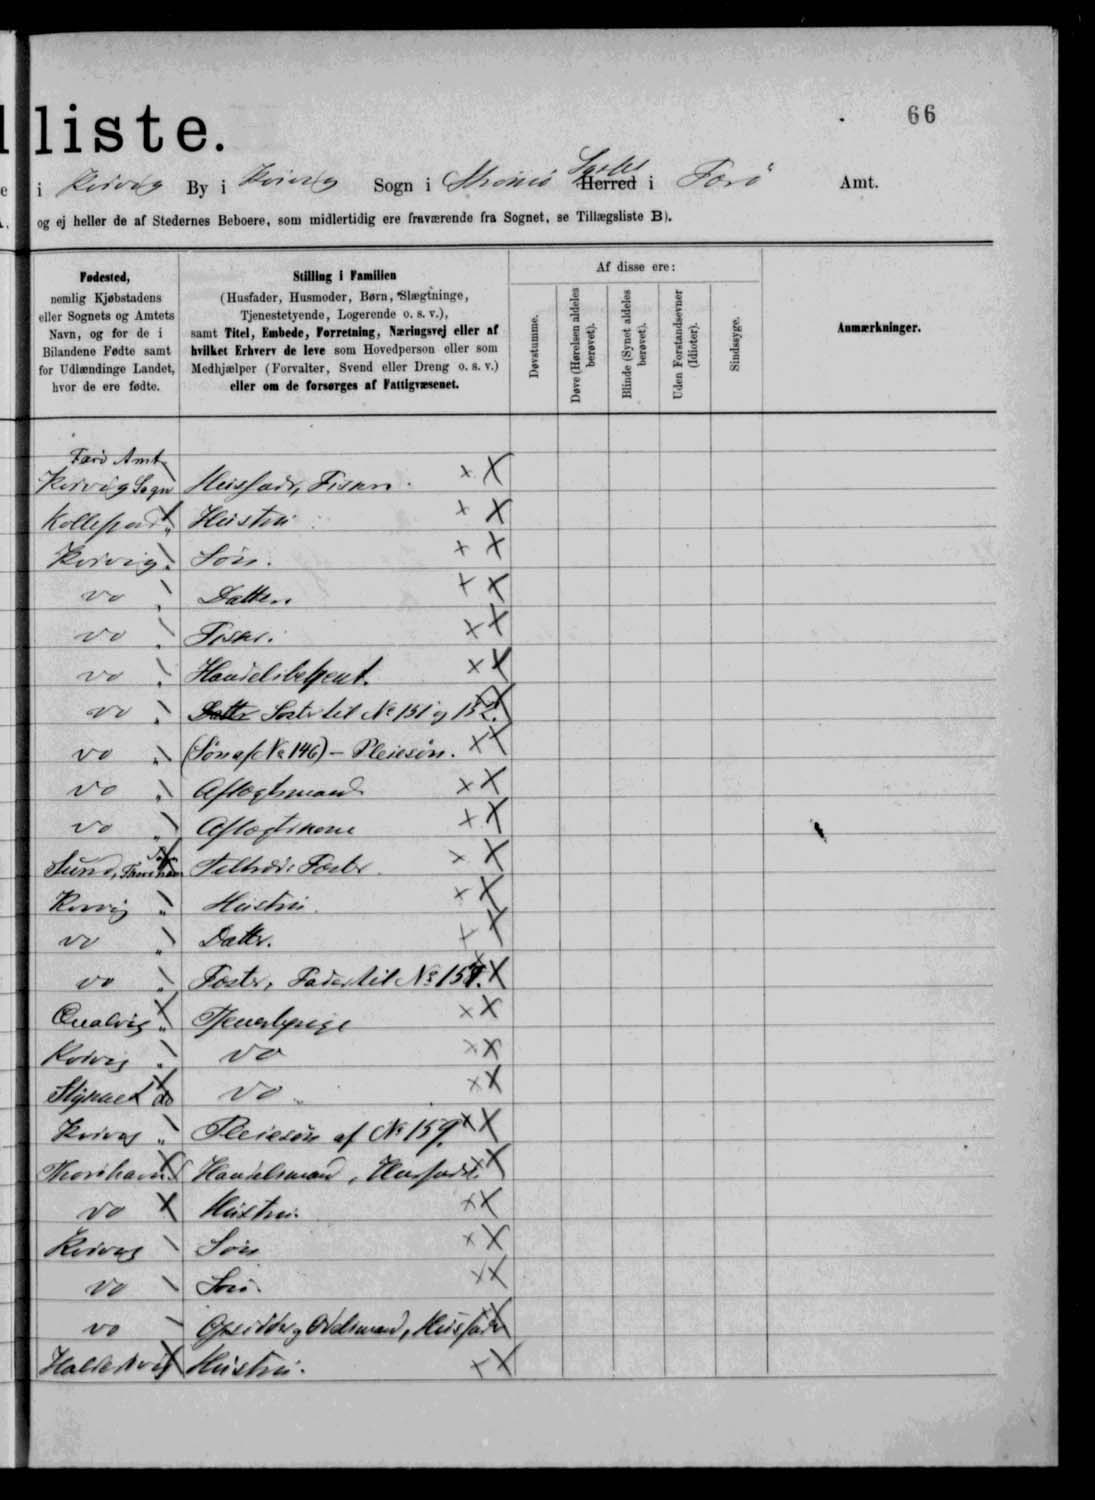 liste.
66
i Kvivig By i Kvivig Sogn i Strømø Syssel Herred i Færø Amt.
og ej heller de af Stedernes Beboere, som midlertidig ere fraværende fra Sognet, se Tillægsliste B).
Fødested,
nemlig Kjøbstadens
eller Sognets og Amtets
Navn, og for de i
Bilandene Fødte samt
for Udlændinge Landet,
hvor de ere fødte.
Stilling i Familien
(Husfader, Husmoder, Børn, Slægtninge,
Tjenestetyende, Logerende o. s. v.),
samt Titel, Embede, Forretning, Næringsvej eller af
hvilket Erhverv de leve som Hovedperson eller som
Medhjælper (Forvalter, Svend eller Dreng o. s. v.)
eller om de forsørges af Fattigvæsenet.
Af disse ere:
Døvstumme.
Døve (Hørelsen aldeles berøvet).
Blinde (Synet aldeles berøvet).
Uden Forstandsevner (Idioter).
Sindssyge.
Anmærkninger.
Færø Amt
Kvivig Sogn Husfader, Fisker. × X
Kollefjord " Hustru × X
Kvivig " Søn. × X
do " Datter. × X
do " Fisker. × X
do " Handelsbetjent. × X
do " Datter Søster til No 151 og 152. × X
do " (Søn af No 146) – Pleiesøn. × X
do " Aftægtsmand × X
do " Aftægtskone × X
Sund, Thorshavn × X
Kvivig " Hustru. × X
do " Datter. × X
do " Fæster, Fader til No 157. × X
Qualvig " Tjenestepige × X
Kvivig " do × X
do do × X
Kvivig " Pleiesøn af No 159. × X
Thorshavn Handelsmand, Husfader × X
do Hustru. × X
Kvivig Søn × X
do Søn. × X
do Opsidder og Odelsmand, Husfader × X
Haldersvig Hustru. × X